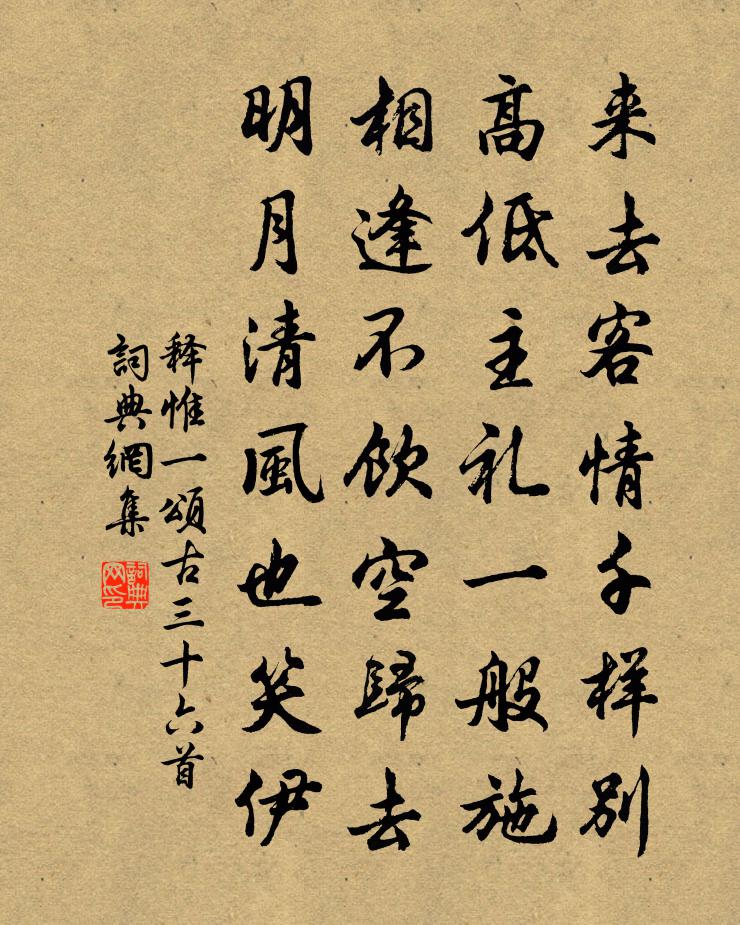 来去客情千样别
高低主礼一般施
相逢不飲空歸去
明月清風也笑伊
释惟一頌古三十六首
詞典網集
詞典网印